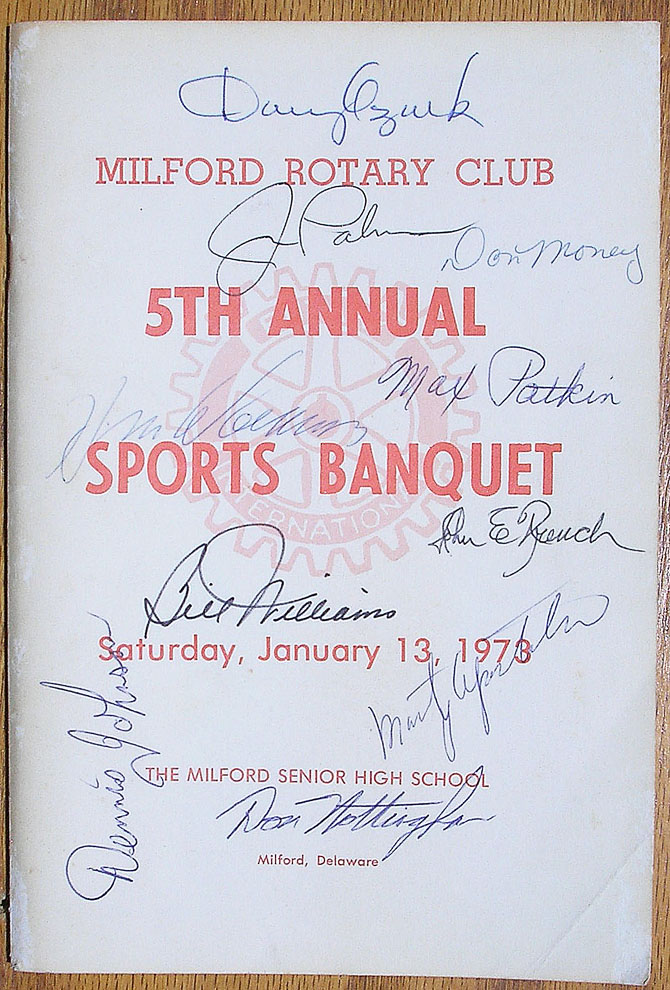 Danny Ozark
MILFORD ROTARY CLUB
Jim Palmer
Don Money
5TH ANNUAL
Max Patkin
SPORTS BANQUET
INTERNATIONAL
John E
Bill Williams
Saturday, January 13, 1973
Marty
Dennis Johnson
THE MILFORD SENIOR HIGH SCHOOL
Don Nottingham
Milford, Delaware